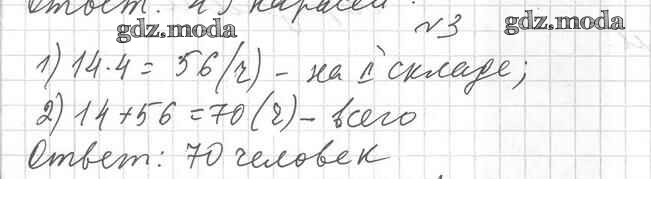 Ответ: 45 карасей.
gdz.moda №3 gdz.moda
1) 14·4 = 56 (ч) – на II складе;
2) 14+56 = 70 (ч) – всего
Ответ: 70 человек
gdz.moda